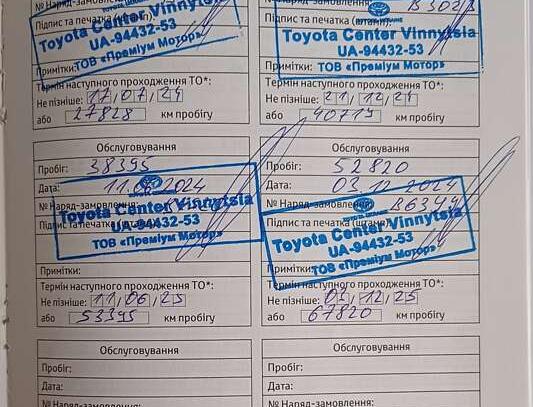 № Наряд-замовлення:
Підпис та печатка
Toyota Center Vinnytsia
UA-94432-53
ТОВ «Преміум Мотор»
Примітки:
Термін наступного проходження ТО*:
Не пізніше: 17/07/24
або 27828 км пробігу
Обслуговування
Пробіг: 38395
Дата: 11.06.2024
№ Наряд-замовлення:
Підпис та печатка
Toyota Center Vinnytsia
UA-94432-53
ТОВ «Преміум Мотор»
Примітки:
Термін наступного проходження ТО*:
Не пізніше: 11/06/25
або 53395 км пробігу
Обслуговування
Пробіг:
Дата:
№ Наряд-замовлення:
Підпис та печатка (штамп):
Toyota Center Vinnytsia
UA-94432-53
ТОВ «Преміум Мотор»
Примітки:
Термін наступного проходження ТО*:
Не пізніше: 21/12/24
або км пробігу
Обслуговування
Пробіг: 52820
Дата: 03.12.2024
№ Наряд-замовлення:
Підпис та печатка (штамп):
Toyota Center Vinnytsia
UA-94432-53
ТОВ «Преміум Мотор»
Примітки:
Термін наступного проходження ТО*:
Не пізніше: 03/12/25
або 67820 км пробігу
Обслуговування
Пробіг:
Дата:
№ Наряд-замовлення: